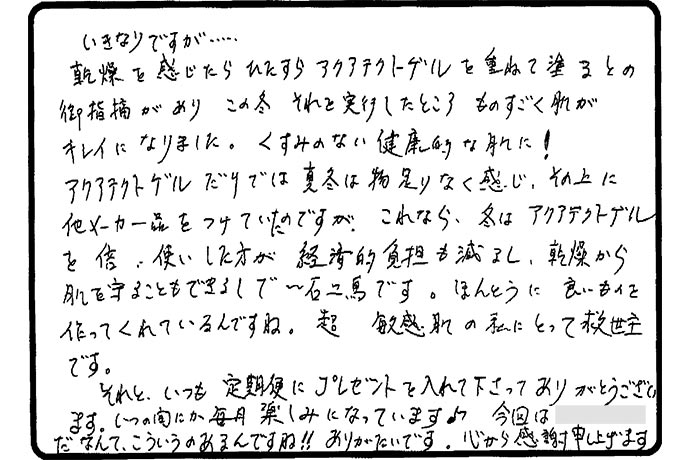 いきなりですが……
乾燥を感じたら ひたすら アクアテクトゲルを重ねて塗るとの
御指摘があり この冬 それを実行したところ ものすごく肌が
キレイになりました。くすみのない健康的な肌に！
アクアテクトゲルだけでは真冬は物足りなく感じ、その上に
他メーカー品をつけていたのですが、これなら、冬はアクアテクトゲル
を倍、使いした方が 経済的負担も減るし、乾燥から
肌を守ることもできるしで 一石二鳥です。ほんとうに良いものを
作ってくれているんですね。超 敏感肌の私にとって救世主
です。
それと、いつも定期便にプレゼントを入れて下さってありがとうござい
ます。いつの間にか毎月楽しみになっています♪ 今回は
だなんて、こういうのあるんですね!! ありがたいです。心から感謝申し上げます